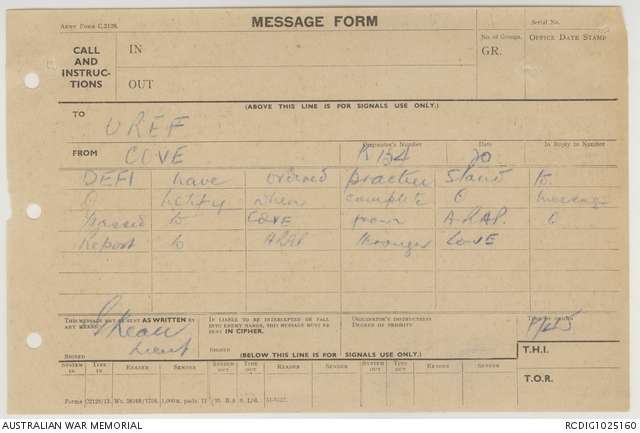 ARMY FORM C.2128.
MESSAGE FORM
Serial No.
CALL AND INSTRUC- TIONS
IN
OUT
No. of Groups.
GR.
OFFICE DATE STAMP
(ABOVE THIS LINE IS FOR SIGNALS USE ONLY.)
TO UREF
Originator's Number Date In Reply to Number
FROM COVE K 134 20
DEFI have ordered practice Stand to
notify when complete message
passed to COVE from ARAP.
Report to ARAP through COVE
THIS MESSAGE MAY BE SENT AS WRITTEN BY ANY MEANS.
IF LIABLE TO BE INTERCEPTED OR FALL INTO ENEMY HANDS, THIS MESSAGE MUST BE SENT IN CIPHER.
ORIGINATOR'S INSTRUCTIONS
DEGREE OF PRIORITY
Lieut
SIGNED
SIGNED
(BELOW THIS LINE IS FOR SIGNALS USE ONLY.)
T.H.I.
SYSTEM IN TIME IN READER SENDER SYSTEM OUT TIME OUT READER SENDER SYSTEM OUT TIME OUT READER SENDER
T.O.R.
AUSTRALIAN WAR MEMORIAL
RCDIG1025160